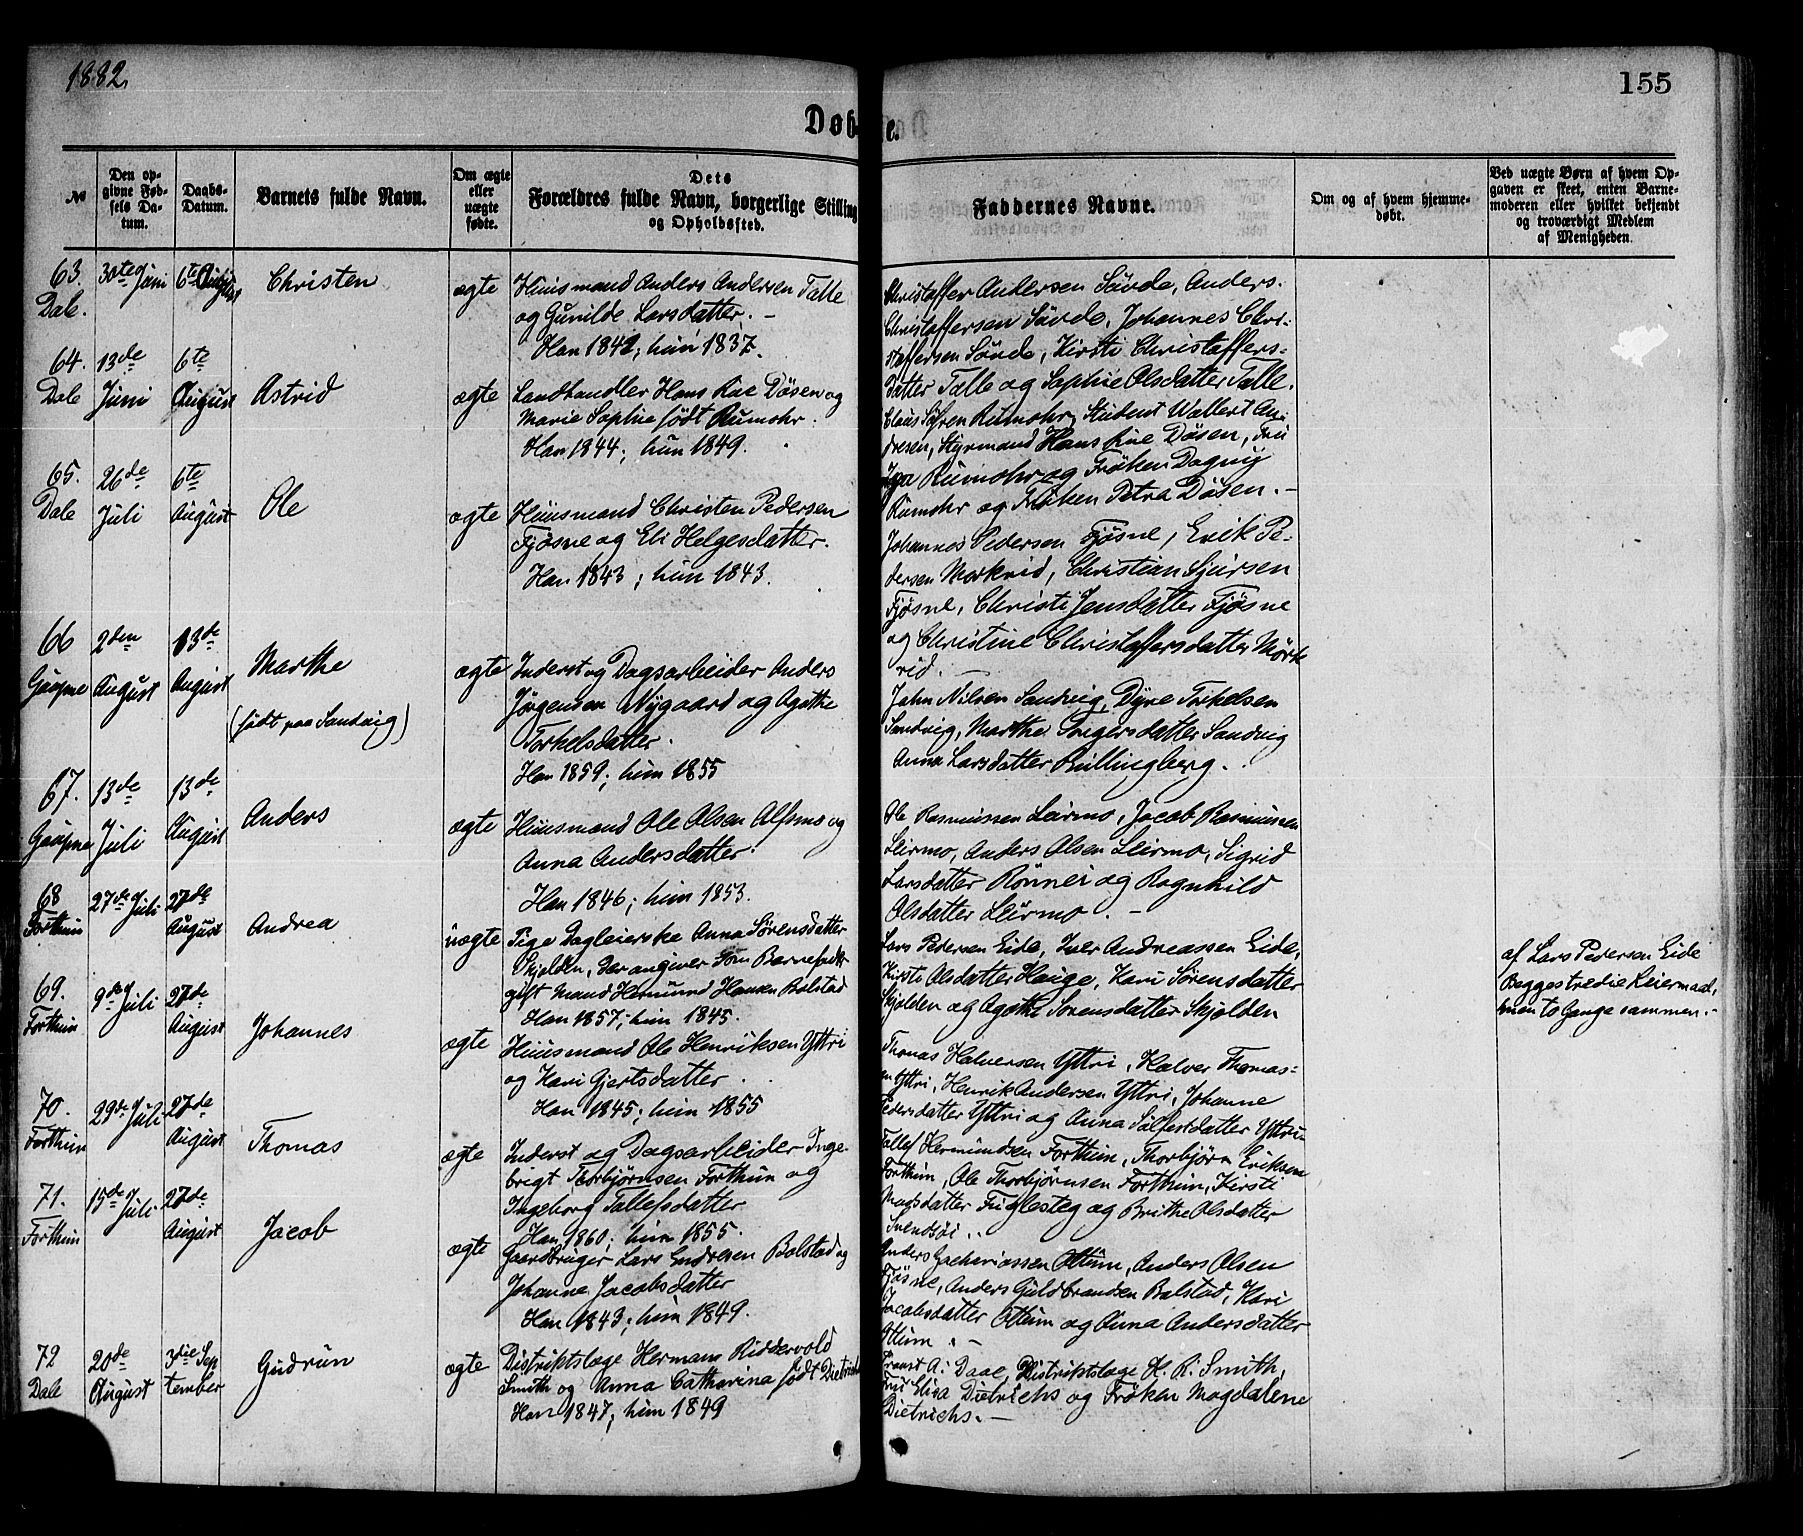 1882.
155
Døbte.
№
Den opgivne Fødsels Datum.
Daabs-Datum.
Barnets fulde Navn.
Om ægte eller uægte fødte.
Dets Forældres fulde Navn, borgerlige Stilling og Opholdssted.
Faddernes Navne.
Om og af hvem hjemmedøbt.
Ved uægte Børn af hvem Opgaven er skeet, enten Barnemoderen eller hvilket bekjendt og troværdigt Medlem af Menigheden.
63. Dale.
30te Juni
6te August
Christen
ægte
Huusmand Anders Andersen Talle
og Gunilde Larsdatter. –
Han 1842; hun 1837.
Christaffer Andersen Søvde, Anders
Christaffersen Søvde, Johannes Chri-
staffersen Søvde, Kirsti Christaffers-
datter Talle og Sophie Olsdatter Talle.
64. Dale
13de Juni
6te August
Astrid
ægte
Landhandler Hans Rue Døsen og
Marie Sophie født Rumohr.
Han 1844; hun 1849.
Claus Søren Rumohr, Student Wallert An-
dresen, Styrmand Hans Rue Døsen, Fru
Rumohr og Frøken Dagny
Rumohr og Frøken Petra Døsen. –
65. Dale
26de Juli
6te August
Ole
ægte
Huusmand Christen Pedersen
Fjøsne og Eli Helgesdatter.
Han 1843; hun 1843.
Johannes Pedersen Fjøsne, Erik Pe-
dersen Morkrid, Christian Sjursen
Fjøsne, Christi Jensdatter Fjøsne
og Christine Christaffersdatter Mørk-
rid.
66 Gaupne
2den August
13de August
Marthe
(født paa Sandvig)
ægte
Inderst og Dagsarbeider Anders
Jørgensen Nygaard og Agathe
Torkelsdatter.
Han 1859; hun 1855
John Nilsen Sandvig, Dyre Torkelsen
Sandvig, Marthe Sandvig
Anna Larsdatter Bullingberg.
67. Gaupne
13de Juli
13de August
Anders
ægte
Huusmand Ole Olsen Alfsmo og
Anna Andersdatter.
Han 1846; hun 1853.
Ole Rasmussen Leirmo, Jacob Rasmussen
Leirmo, Anders Olsen Leirmo, Sigrid
Larsdatter Rønnei og Ragnhild
Olsdatter Leirmo. –
68 Forthun
27de Juli
27de August
Andrea
uægte
Pige Anna Sørensdatter
Skjolden, der angiver som Barnefader
gift Mand Hermund Hansen Bolstad
Han 1857; hun 1845.
Lars Pedersen Eide, Iver Andreassen Eide,
Kirsti Olsdatter Hauge, Kari Sørensdatter
Skjolden og Agathe Sørensdatter Skjolden
af Lars Pedersen Eide
Begges tredie Leiermaal,
men to Gange sammen. –
69. Forthun
9de Juli
27de August
Johannes
ægte
Huusmand Ole Henriksen Yttri
og Kari Gjertsdatter.
Han 1845; hun 1855
Thomas Halversen Yttri, Halver Thomas-
en Yttri, Henrik Andersen Yttri, Johanne
Pedersdatter Yttri og Anna Sølfestdatter Yttri.
70. Forthun
29de Juli
27de August
Thomas
ægte
Inderst og Dagsarbeider Inge-
brigt Thorbjørnsen Forthun og
Ingeborg Tallefsdatter
Han 1860; hun 1855.
Tallef Hermundsen Forthun, Thorbjørn Eriksen
Forthun, Ole Thorbjørnsen Forthun, Kirsti
Madsdatter Fuglesteg og Brithe Olsdatter
Svendsøi.
71. Forthun
15de Juli
27de August
Jacob
ægte
Gaardbruger Lars Endresen Bolstad og
Johanna Jacobsdatter
Han 1843; hun 1849.
Anders Zachariassen Ottum, Anders Olsen
Fjøsne, Anders Guldbrandsen Bolstad, Kari
Jacobsdatter Ottum og Anna Andersdatter
Ottum. –
72 Dale
20de August
3die September
Gudrun
ægte
Distriktslæge Hermann Riddervold
Smith og Anna Catharina født Dietrichs
Han 1847; hun 1849
Provst A. Daae, Distriktslæge H. R. Smith,
Fru Elisa Dietrichs og Frøken Magdalene
Dietrichs. –